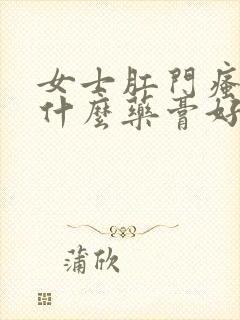 女士肛門瘙
什麼藥膏好
蒲欣